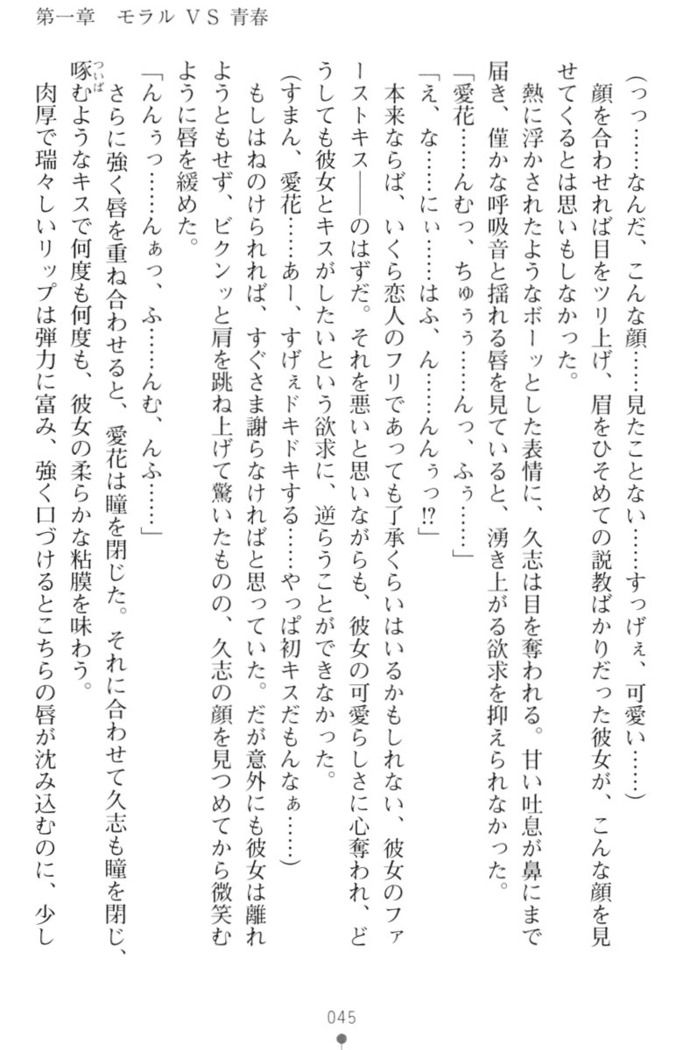 第一章　モラル VS 青春
（っっ……なんだ、こんな顔……見たことない……すっげぇ、可愛い……）
　顔を合わせれば目をツリ上げ、眉をひそめての説教ばかりだった彼女が、こんな顔を見
せてくるとは思いもしなかった。
　熱に浮かされたようなボーッとした表情に、久志は目を奪われる。甘い吐息が鼻にまで
届き、僅かな呼吸音と揺れる唇を見ていると、湧き上がる欲求を抑えられなかった。
「愛花……んむっ、ちゅぅぅ……んっ、ふぅ……」
「え、な……にぃ……はふ、ん……んんぅっ!?」
　本来ならば、いくら恋人のフリであっても了承くらいはいるかもしれない、彼女のファ
ーストキス――のはずだ。それを悪いと思いながらも、彼女の可愛らしさに心奪われ、ど
うしても彼女とキスがしたいという欲求に、逆らうことができなかった。
（すまん、愛花……あー、すげぇドキドキする……やっぱ初キスだもんなぁ……）
　もしはねのけられれば、すぐさま謝らなければと思っていた。だが意外にも彼女は離れ
ようともせず、ビクンッと肩を跳ね上げて驚いたものの、久志の顔を見つめてから微笑む
ように唇を緩めた。
「んんぅっ……んぁっ、ふ……んむ、んふ……」
　さらに強く唇を重ね合わせると、愛花は瞳を閉じた。それに合わせて久志も瞳を閉じ、
啄むようなキスで何度も何度も、彼女の柔らかな粘膜を味わう。
ついば
　肉厚で瑞々しいリップは弾力に富み、強く口づけるとこちらの唇が沈み込むのに、少し
045